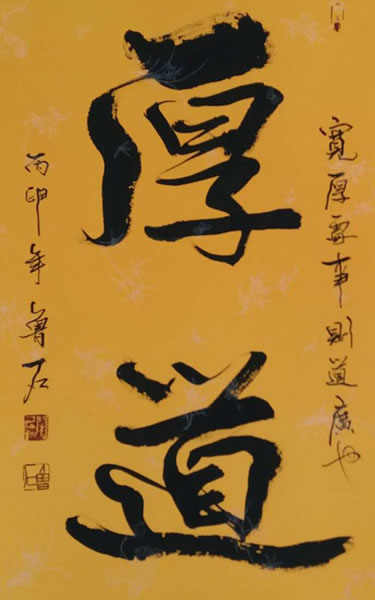 厚道
寬厚事則道廣也
丙申年魯石